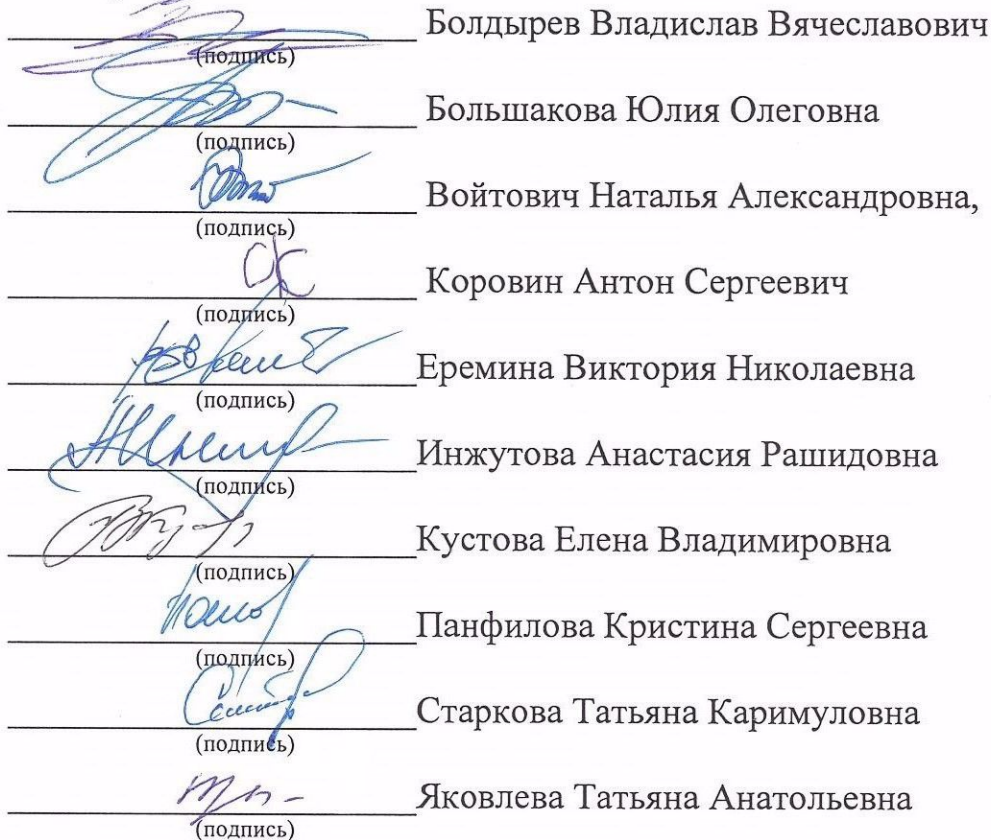 Болдырев Владислав Вячеславович
(подпись)
Большакова Юлия Олеговна
(подпись)
Войтович Наталья Александровна,
(подпись)
Коровин Антон Сергеевич
(подпись)
Еремина Виктория Николаевна
(подпись)
Инжутова Анастасия Рашидовна
(подпись)
Кустова Елена Владимировна
(подпись)
Панфилова Кристина Сергеевна
(подпись)
Старкова Татьяна Каримуловна
(подпись)
Яковлева Татьяна Анатольевна
(подпись)